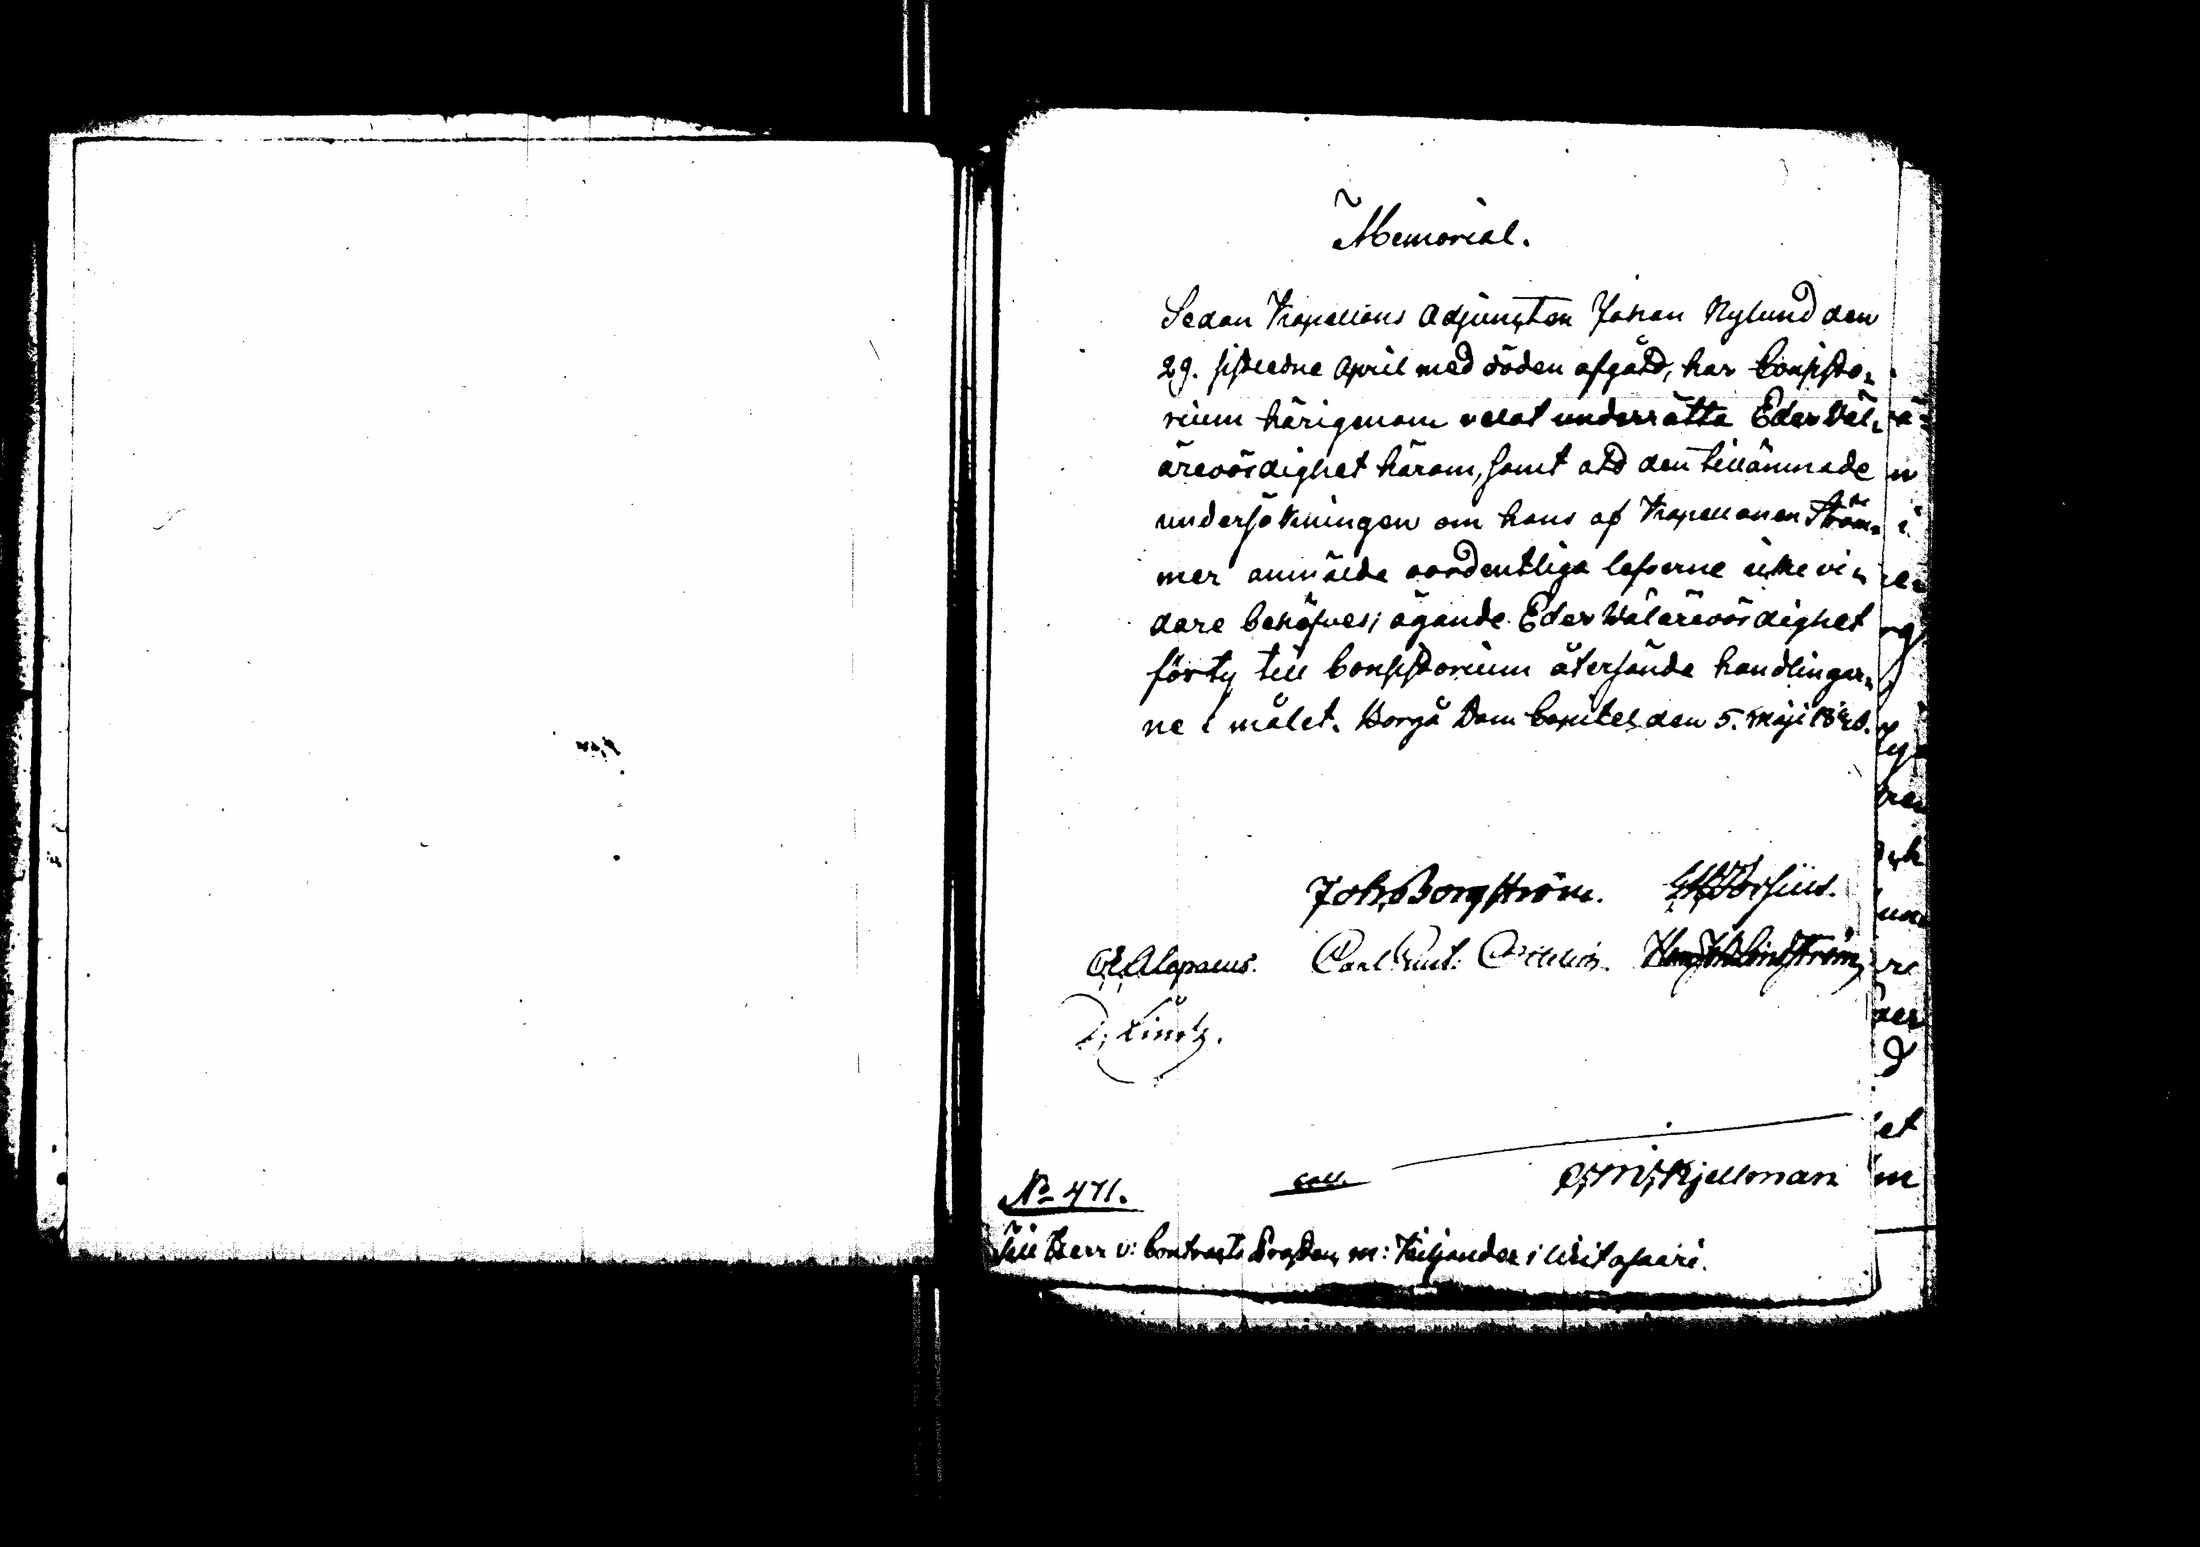 Memorial.
Sedan Kapellans Adjuncten Johan Nylund den
29. sistledne April med döden afgått, har Consisto-
rium härigenom velat underrätta Eder Väl-
ärevördighet härom, samt att den tillämnade
undersökningen om hans af Kapellanen Ström-
mer anmälda oordentliga lefverne icke vi-
dare behöfves; ägande Eder Välärevördighet
förty till Consistorium återsända handlingar-
ne i målet. Borgå Dom Capitel den 5. Maji
Joh. Borgström.
Alopaeus. Carl
N:o 471. coll. Kjellman
Till Herr v: Contracts Prosten, m: Kiljander i Witasaari.